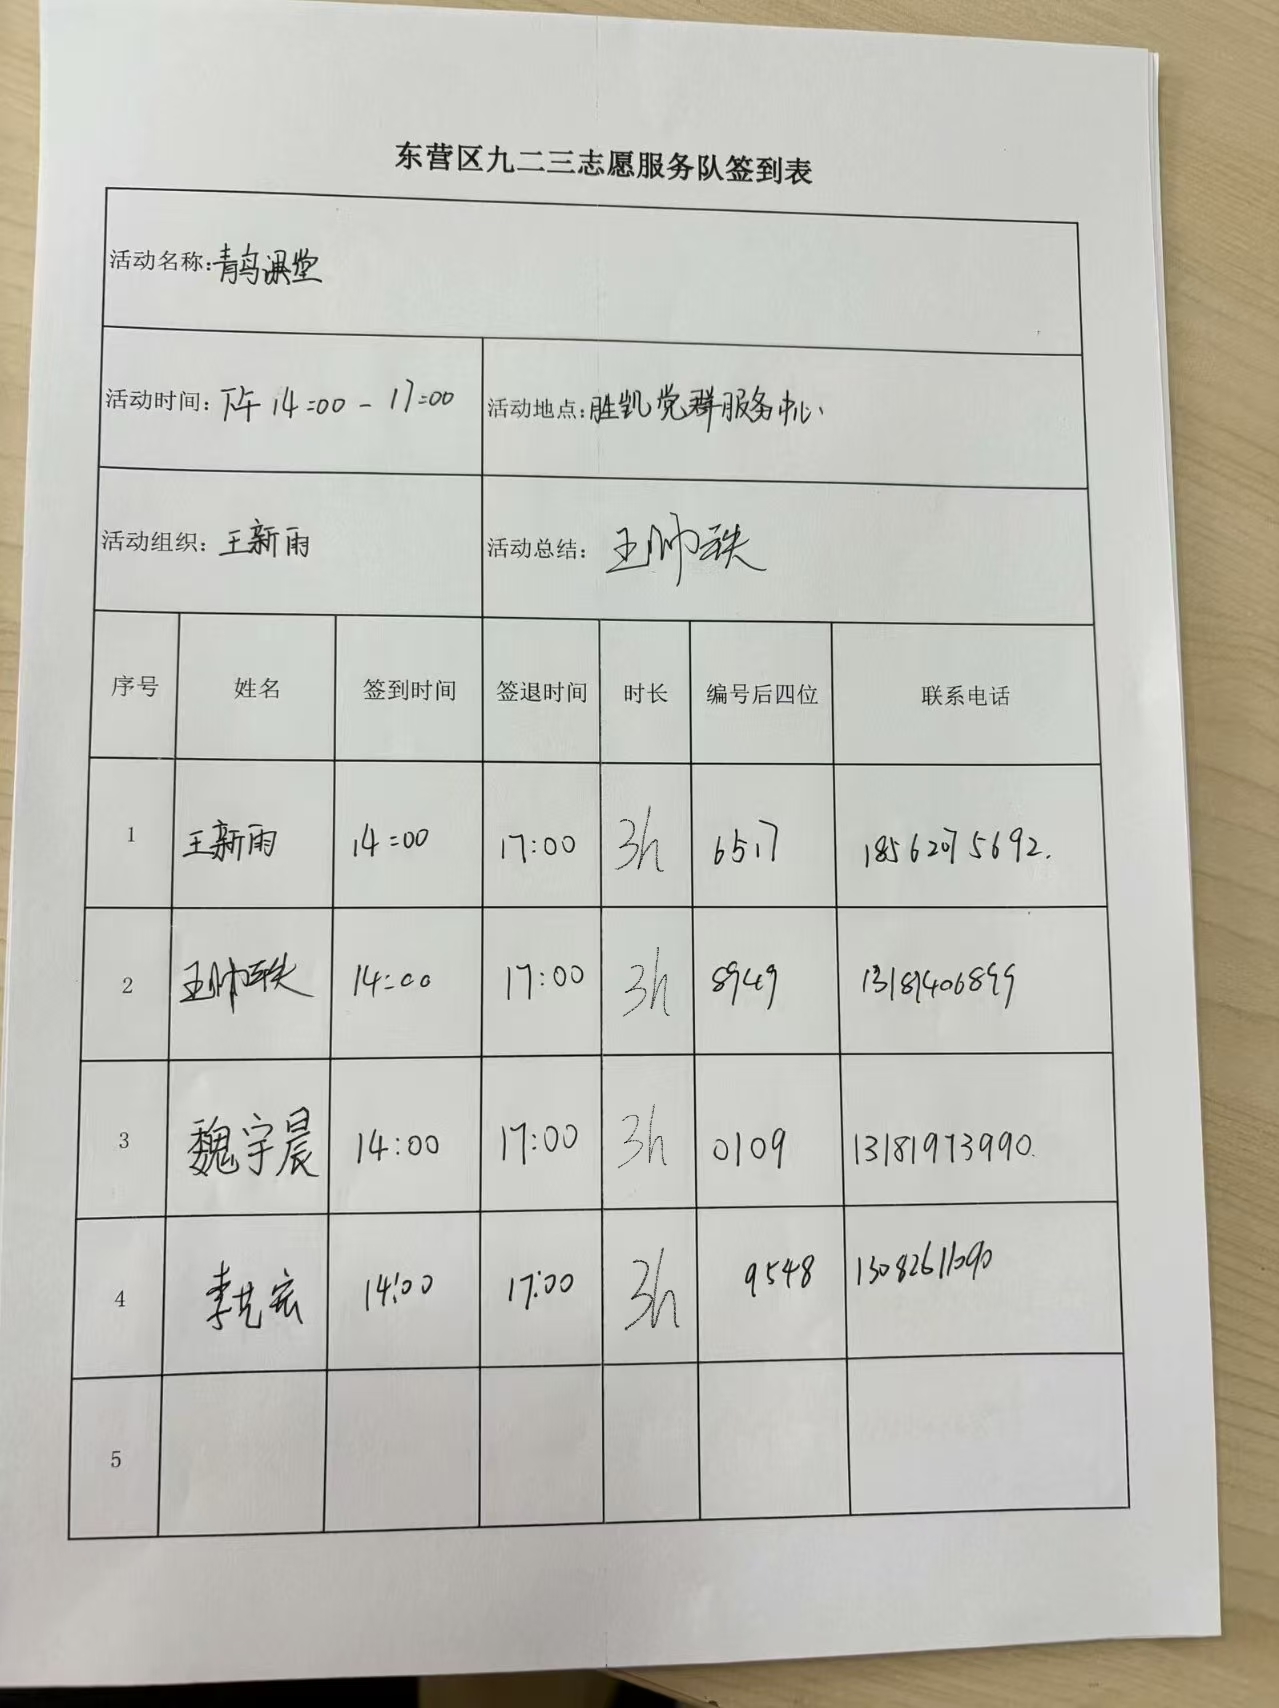 东营区九二三志愿服务队签到表
活动名称：青鸟课堂
活动时间：下午 14:00 - 17:00 活动地点：胜凯党群服务中心
活动组织：王新雨 活动总结：王帅轶
序号 姓名 签到时间 签退时间 时长 编号后四位 联系电话
1 王新雨 14:00 17:00 3h 6517 18562075692.
2 王帅轶 14:00 17:00 3h 8949 13189406899
3 魏宇晨 14:00 17:00 3h 0109 13181973990.
4 李艺宏 14:00 17:00 3h 9548
5